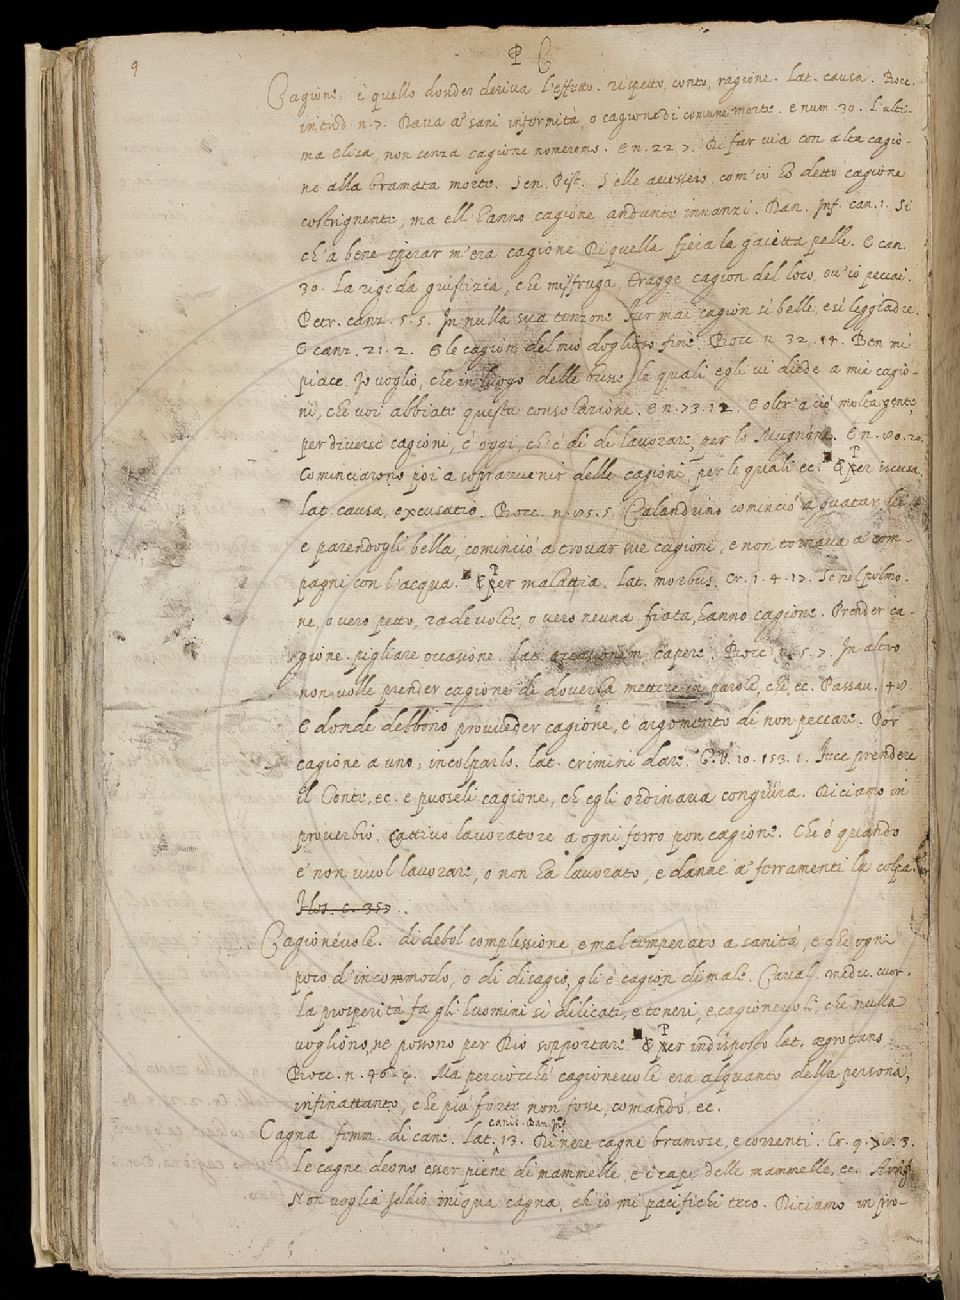 9
P C
Cagione. è quello donde deriva l'effetto. rispetto, conto, ragione. Lat. causa. Bocc.
introd. n. 7. Dava a' sani infermità, o cagione di comune morte. e num. 30. L'ulti-
ma Elisa, non senza cagione nomeremo. E n. 22. 7. Di far via con alta cagio-
ne alla bramata morte. Sen. Pist. S'elle avessero, com'io hò detto cagione
costrignente, ma ell'hanno cagione andante innanzi. Dan. Inf. can. 1. Sì
ch'a bene sperar m'era cagione Di quella fiera la gaietta pelle. E can.
30. La rigida giustizia, che mi fruga, tragge cagion del loco, ov'io peccai.
Petr. canz. 5. 5. In nulla sua tenzone Fur mai cagion sì belle, e sì leggiadre.
E canz. 21. 2. E le cagion del mio doglioso fine. Bocc. n. 32. 14. Ben mi
piace. Io voglio, che in luogo delle busse, le quali egli vi diede a mie cagio-
ni, che voi abbiate questa consolazione. E n. 73. 12. E oltr'a ciò molta gente,
per diverse cagioni, è oggi, ch'è dì di lavorare, per lo Mugnone. E n. 80. 20.
Cominciarono poi a sopravvenir delle cagioni, per le quali ec. P Per iscusa,
Lat. causa, excusatio. Bocc. n. 85. 5. Calandrino cominciò a guatar lei
e parendogli bella, cominciò a trovar sue cagioni, e non tornava a com-
pagni con l'acqua. P Per malattia. Lat. morbus. Cr. 1. 4. 17. Se nel polmo-
ne, o vero petto, rade volte, o vero neuna fiata, hanno cagione. Prender ca-
gione. pigliare occasione. Lat. occasionem capere. Bocc. n. 5. 7. In altro
non volle prender cagione di doverla mettere in parole, che ec. Passav. 48
E donde debbono provveder cagione, e argomento di non peccare. Por
cagione a uno, incolparlo. Lat. crimini dare. G. V. 10. 153. 1. Fece prendere
il Conte, ec. e puoseli cagione, ch'egli ordinava congiura. Diciamo in
proverbio. Cattivo lavoratore a ogni ferro pon cagione. Che è quando
e' non vuol lavorare, o non ha lavorato, e danne a' ferramenti la colpa.
Flos. c. 357
Cagionévole. di debol complessione, e mal temperato a sanità, e che ogni
poco d'incommodo, o di disagio, gli è cagion di male. Caval. medic. cuor.
La prosperità fa gli huomini sì dilicati, e teneri, e cagionevoli, che nulla
vogliono, ne possono per Dio sopportare. P Per indisposto lat. ægrotans
Bocc. n. 46. 9. Ma perciocché cagionevole era alquanto della persona,
infinattanto, che più forte non fosse, comandò, ec.
Cagna. femm. di cane. Lat. canis. Dan. Inf. 13. Di nere cagne bramose, e correnti. Cr. 9. 78. 3.
Le cagne deono esser piene di mammelle, e i capi delle mammelle, ec. Arios.
Non voglia Iddio iniqua cagna, ch'io mi pacifichi teco. Diciamo in pro-